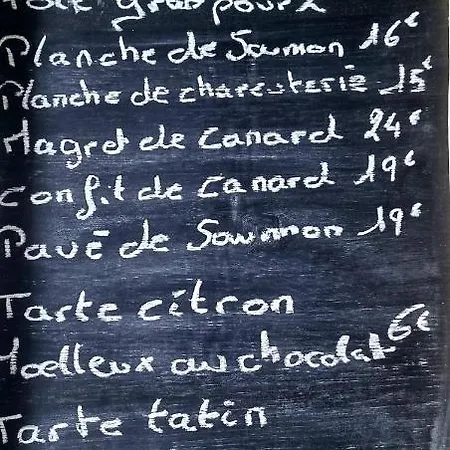 pour 2
Planche de Saumon 16€
Planche de charcuterie 15€
Magret de canard 24€
Confit de canard 19€
Pavé de Saumon 19€
Tarte citron
Moelleux au chocolat 6€
Tarte tatin